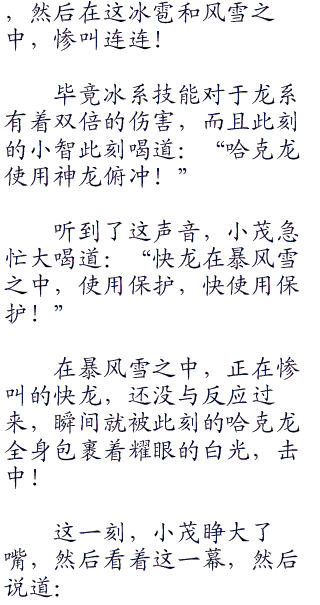 ，然后在这冰雹和风雪之
中，惨叫连连！
毕竟冰系技能对于龙系
有着双倍的伤害，而且此刻
的小智此刻喝道：“哈克龙
使用神龙俯冲！”
听到了这声音，小茂急
忙大喝道：“快龙在暴风雪
之中，使用保护，快使用保
护！”
在暴风雪之中，正在惨
叫的快龙，还没与反应过
来，瞬间就被此刻的哈克龙
全身包裹着耀眼的白光，击
中！
这一刻，小茂睁大了
嘴，然后看着这一幕，然后
说道：